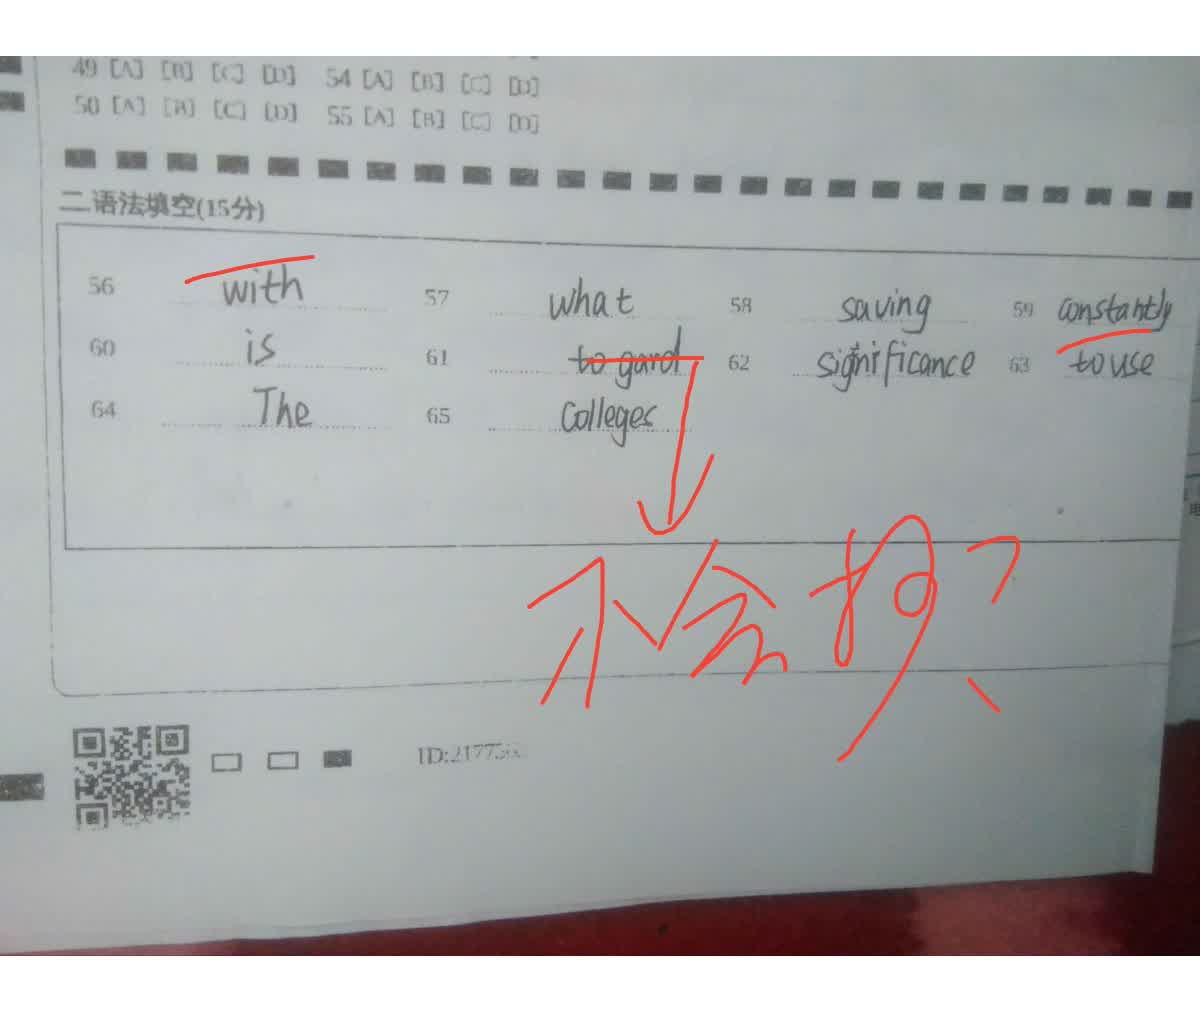 49 [A] [B] [C] [D] 54 [A] [B] [C] [D]
50 [A] [B] [C] [D] 55 [A] [B] [C] [D]
二.语法填空(15分)
56 with 57 what 58 saving 59 constantly
60 is 61 to gard 62 significance 63 to use
64 The 65 Colleges
不会抄?
ID:217756